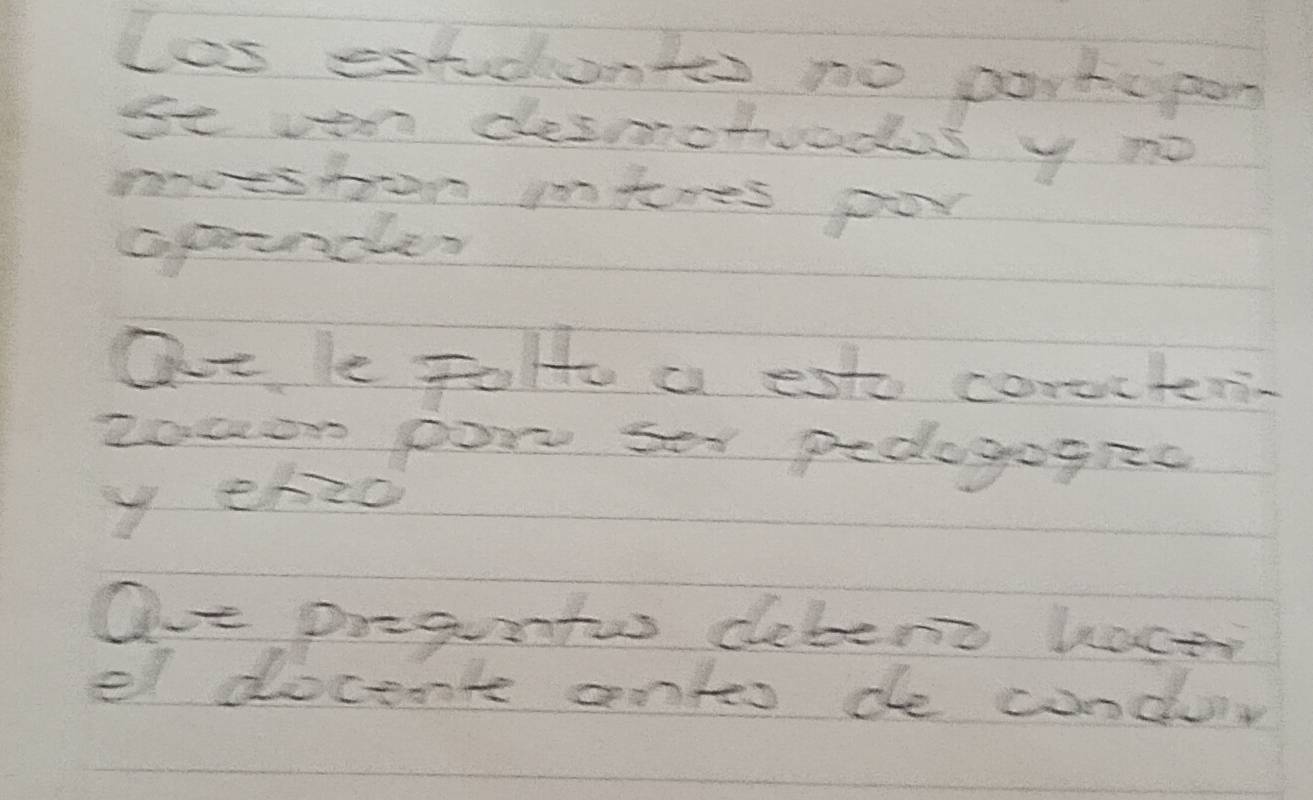 Los estudiantes no participan
se ven desmotivados y no
muestran interes por
aprender
Que le falta a esta caracteri-
zacion para ser pedagogica
y etica
Que preguntas deberia hacer
el docente antes de concluir